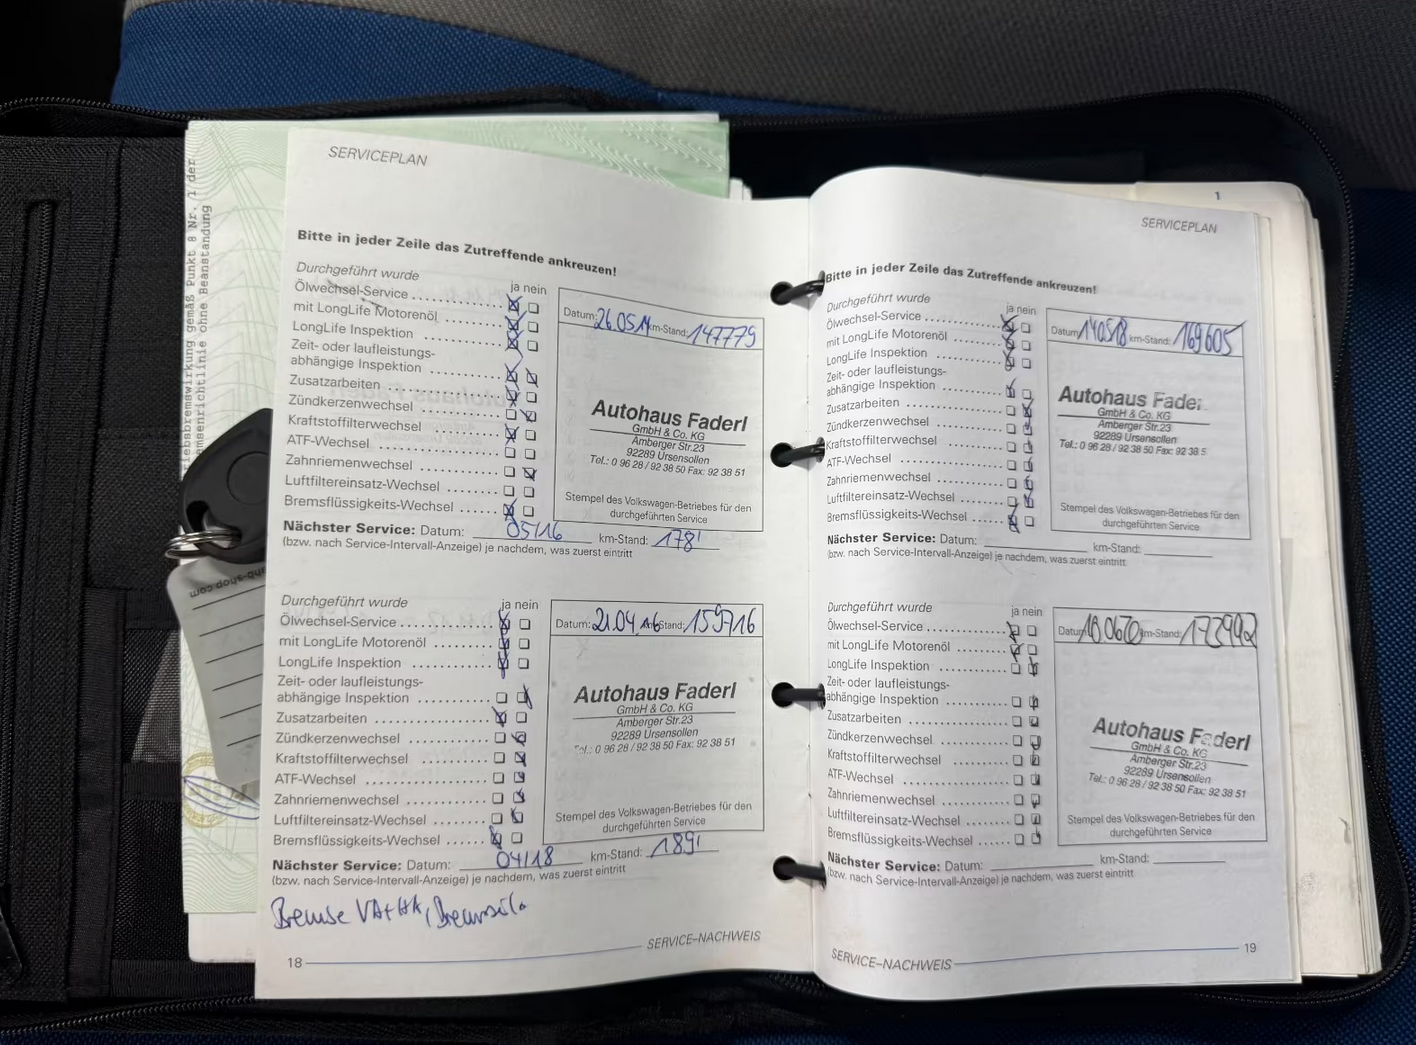 SERVICEPLAN
Bitte in jeder Zeile das Zutreffende ankreuzen!
Durchgeführt wurde
ja nein
Ölwechsel-Service
mit LongLife Motorenöl
LongLife Inspektion
Zeit- oder laufleistungs-
abhängige Inspektion
Zusatzarbeiten
Zündkerzenwechsel
Kraftstoffilterwechsel
ATF-Wechsel
Zahnriemenwechsel
Luftfiltereinsatz-Wechsel
Bremsflüssigkeits-Wechsel
Datum: 26.05.14 km-Stand: 147779
Autohaus Faderl
GmbH & Co. KG
Amberger Str.23
92289 Ursensollen
Tel.: 0 96 28 / 92 38 50 Fax: 92 38 51
Stempel des Volkswagen-Betriebes für den
durchgeführten Service
Nächster Service: Datum: 05/16 km-Stand: 178'
(bzw. nach Service-Intervall-Anzeige) je nachdem, was zuerst eintritt
Durchgeführt wurde
ja nein
Ölwechsel-Service
mit LongLife Motorenöl
LongLife Inspektion
Zeit- oder laufleistungs-
abhängige Inspektion
Zusatzarbeiten
Zündkerzenwechsel
Kraftstoffilterwechsel
ATF-Wechsel
Zahnriemenwechsel
Luftfiltereinsatz-Wechsel
Bremsflüssigkeits-Wechsel
Datum: 21.04.16 km-Stand: 159716
Autohaus Faderl
GmbH & Co. KG
Amberger Str.23
92289 Ursensollen
Tel.: 0 96 28 / 92 38 50 Fax: 92 38 51
Stempel des Volkswagen-Betriebes für den
durchgeführten Service
Nächster Service: Datum: 04/18 km-Stand: 189'
(bzw. nach Service-Intervall-Anzeige) je nachdem, was zuerst eintritt
Bremse VA+HA,
SERVICE–NACHWEIS
18
1
SERVICEPLAN
Bitte in jeder Zeile das Zutreffende ankreuzen!
Durchgeführt wurde
ja nein
Ölwechsel-Service
mit LongLife Motorenöl
LongLife Inspektion
Zeit- oder laufleistungs-
abhängige Inspektion
Zusatzarbeiten
Zündkerzenwechsel
Kraftstoffilterwechsel
ATF-Wechsel
Zahnriemenwechsel
Luftfiltereinsatz-Wechsel
Bremsflüssigkeits-Wechsel
Datum: 140518 km-Stand: 169605
Autohaus Fader
GmbH & Co. KG
Amberger Str.23
92289 Ursensollen
Tel.: 0 96 28 / 92 38 50 Fax: 92 38 5
Stempel des Volkswagen-Betriebes für den
durchgeführten Service
Nächster Service: Datum: km-Stand:
(bzw. nach Service-Intervall-Anzeige) je nachdem, was zuerst eintritt
Durchgeführt wurde
ja nein
Ölwechsel-Service
mit LongLife Motorenöl
LongLife Inspektion
Zeit- oder laufleistungs-
abhängige Inspektion
Zusatzarbeiten
Zündkerzenwechsel
Kraftstoffilterwechsel
ATF-Wechsel
Zahnriemenwechsel
Luftfiltereinsatz-Wechsel
Bremsflüssigkeits-Wechsel
Datum: 180620 km-Stand:
Autohaus Faderl
GmbH & Co. KG
Amberger Str.23
92289 Ursensollen
Tel.: 0 96 28 / 92 38 50 Fax: 92 38 51
Stempel des Volkswagen-Betriebes für den
durchgeführten Service
Nächster Service: Datum: km-Stand:
(bzw. nach Service-Intervall-Anzeige) je nachdem, was zuerst eintritt
SERVICE–NACHWEIS
19